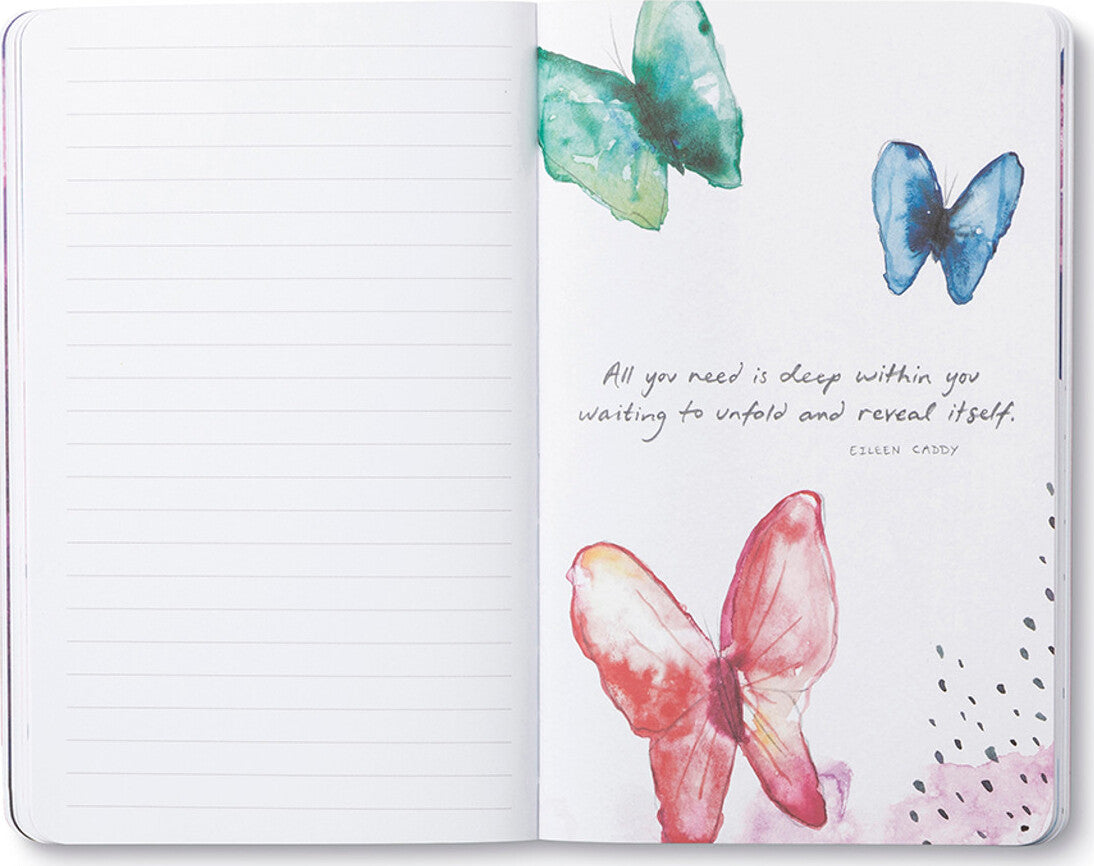 All you need is deep within you
waiting to unfold and reveal itself.
EILEEN CADDY